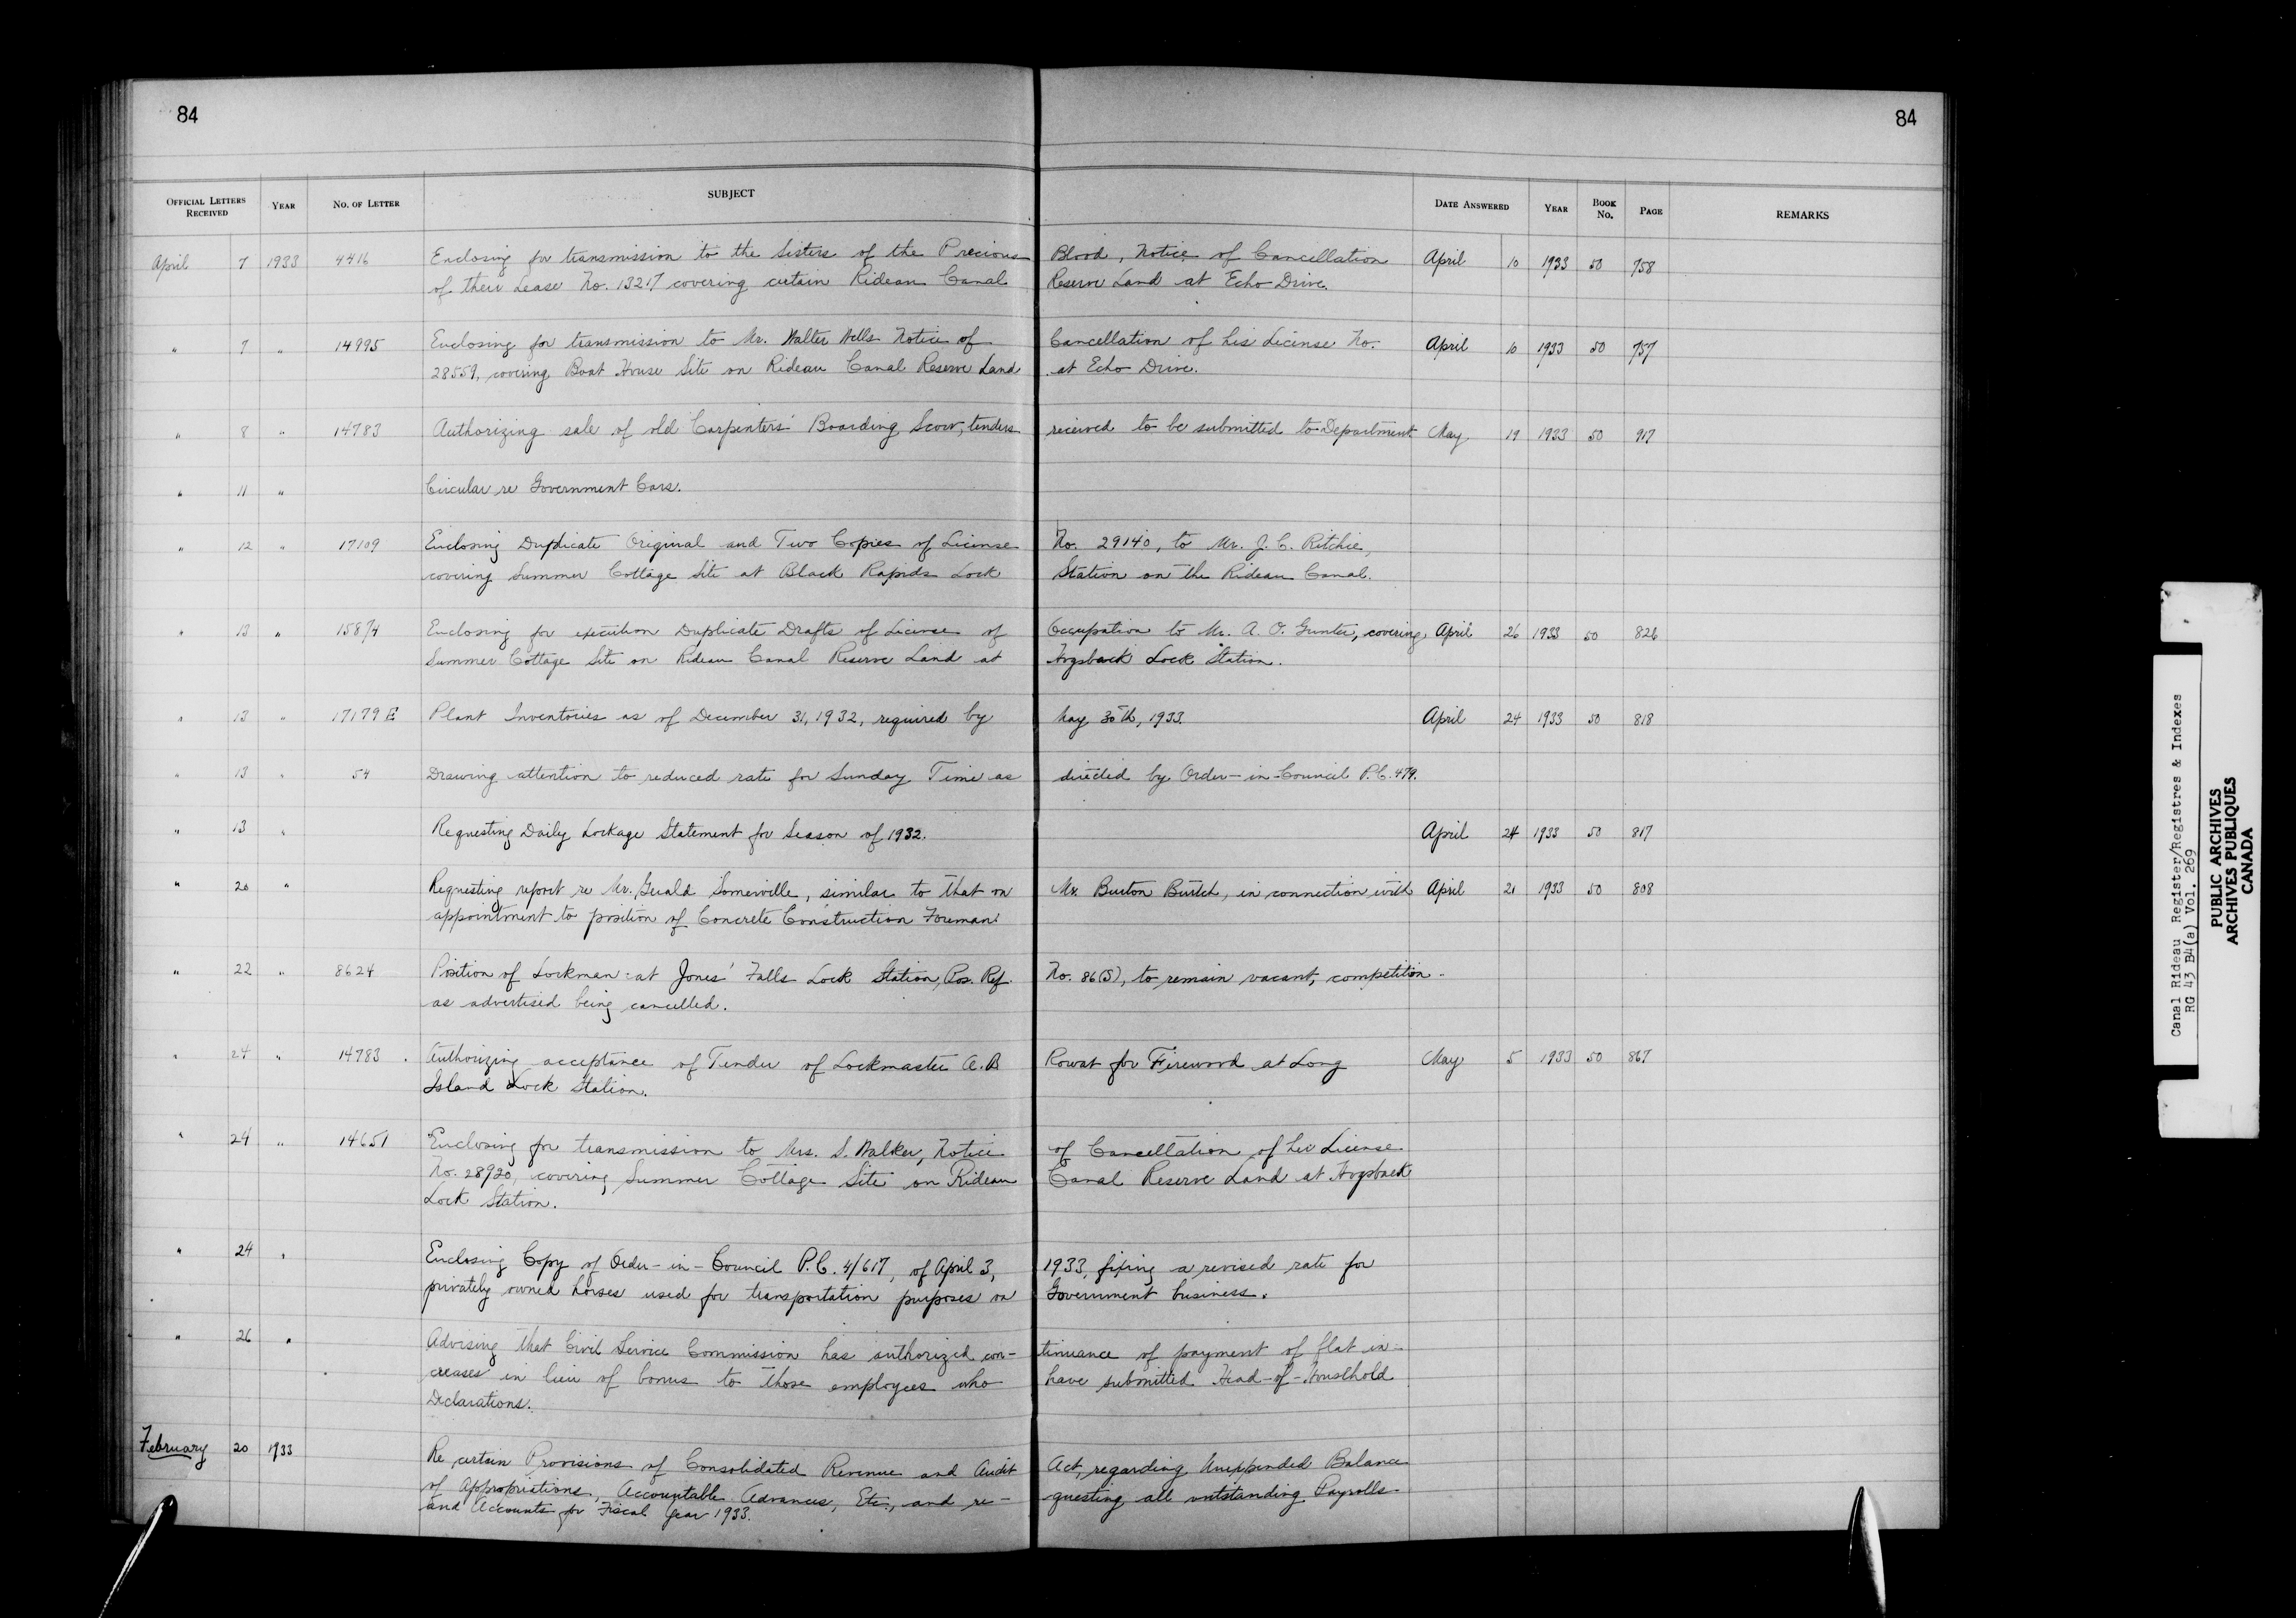 84
84
OFFICIAL LETTERS RECEIVED YEAR NO. OF LETTER SUBJECT DATE ANSWERED YEAR BOOK NO. PAGE REMARKS
April 7 1933 4416 Enclosing for transmission to the Sisters of the Precious Blood, Notice of Cancellation April 10 1933 50 758
of their Lease No. 13217 covering certain Rideau Canal Reserve Land at Echo Drive.
" 7 " 14995 Enclosing for transmission to Mr. Walter Wells Notice of Cancellation of his License No. April 10 1933 50 757
28559, covering Boat House Site on Rideau Canal Reserve Land at Echo Drive.
" 8 " 14783 Authorizing sale of old Carpenters' Boarding Scow, tenders received to be submitted to Department May 19 1933 50 917
" 11 " Circular re Government Cars.
" 12 " 17109 Enclosing Duplicate Original and Two Copies of License No. 29140, to Mr. J. C. Ritchie,
covering Summer Cottage Site at Black Rapids Lock Station on the Rideau Canal.
" 13 " 15874 Enclosing for execution Duplicate Drafts of License of Occupation to Mr. A. O. Gunter, covering April 26 1933 50 826
Summer Cottage Site on Rideau Canal Reserve Land at Hogsback Lock Station.
" 13 " 17179 E Plant Inventories as of December 31, 1932, required by May 30th, 1933. April 24 1933 50 818
" 13 " 54 Drawing attention to reduced rate for Sunday Time as directed by Order-in-Council P.C. 479.
" 13 " Requesting Daily Lockage Statement for Season of 1932. April 24 1933 50 817
" 20 " Requesting report re Mr. Gerald Somerville, similar to that on Mr. Burton Burtch, in connection with April 21 1933 50 808
appointment to position of Concrete Construction Foreman.
" 22 " 8624 Position of Lockman at Jones' Falls Lock Station, Pos. Ref. No. 86(S), to remain vacant, competition
as advertised being cancelled.
" 24 " 14783 Authorizing acceptance of Tender of Lockmaster A. B Rowat for Firewood at Long May 5 1933 50 867
Island Lock Station.
" 24 " 14651 Enclosing for transmission to Mrs. S. Walker, Notice of Cancellation of her License
No. 28920, covering Summer Cottage Site on Rideau Canal Reserve Land at Hogsback
Lock Station.
" 24 " Enclosing Copy of Order-in-Council P.C. 4/617, of April 3, 1933, fixing a revised rate for
privately owned horses used for transportation purposes on Government business.
" 26 " Advising that Civil Service Commission has authorized con-tinuance of payment of flat in-
creases in lieu of bonus to those employees who have submitted Head-of-Household
Declarations.
February 20 1933 Re certain Provisions of Consolidated Revenue and Audit Act, regarding Unexpended Balance
of Appropriations, Accountable Advances, Etc., and re-questing all outstanding Payrolls
and Accounts for Fiscal Year 1933.
Canal Rideau Register/Registres & Indexes
RG 43 B4(a) Vol. 269
PUBLIC ARCHIVES
ARCHIVES PUBLIQUES
CANADA